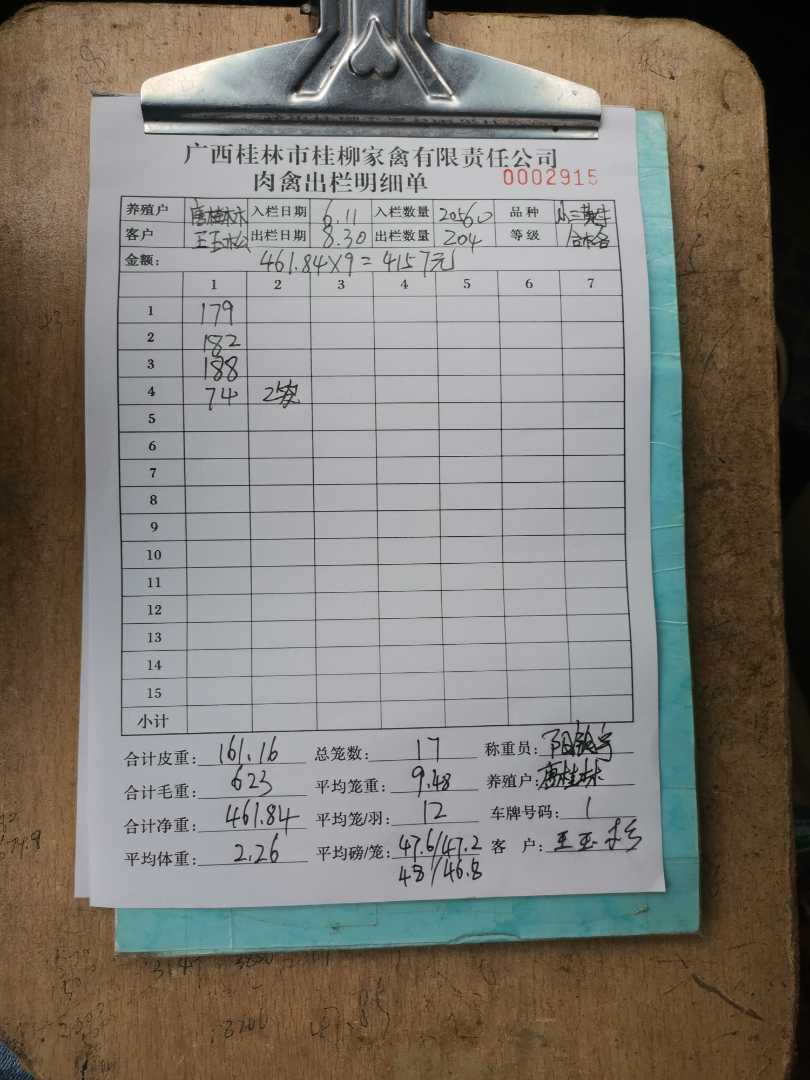 广西桂林市桂柳家禽有限责任公司
肉禽出栏明细单 0002915
养殖户 唐桂林 入栏日期 6.11 入栏数量 20560 品种
客户 王玉松 出栏日期 8.30 出栏数量 204 等级 合格
金额： 461.84×9=4157元
1 2 3 4 5 6 7
1 179
2 182
3 188
4 74 2笼
5
6
7
8
9
10
11
12
13
14
15
小计
合计皮重： 161.16 总笼数： 17 称重员：
合计毛重： 623 平均笼重： 9.48 养殖户： 唐桂林
合计净重： 461.84 平均笼/羽： 12 车牌号码： 1
平均体重： 2.26 平均磅/笼： 47.6/47.2 客 户： 王玉松
48/46.8